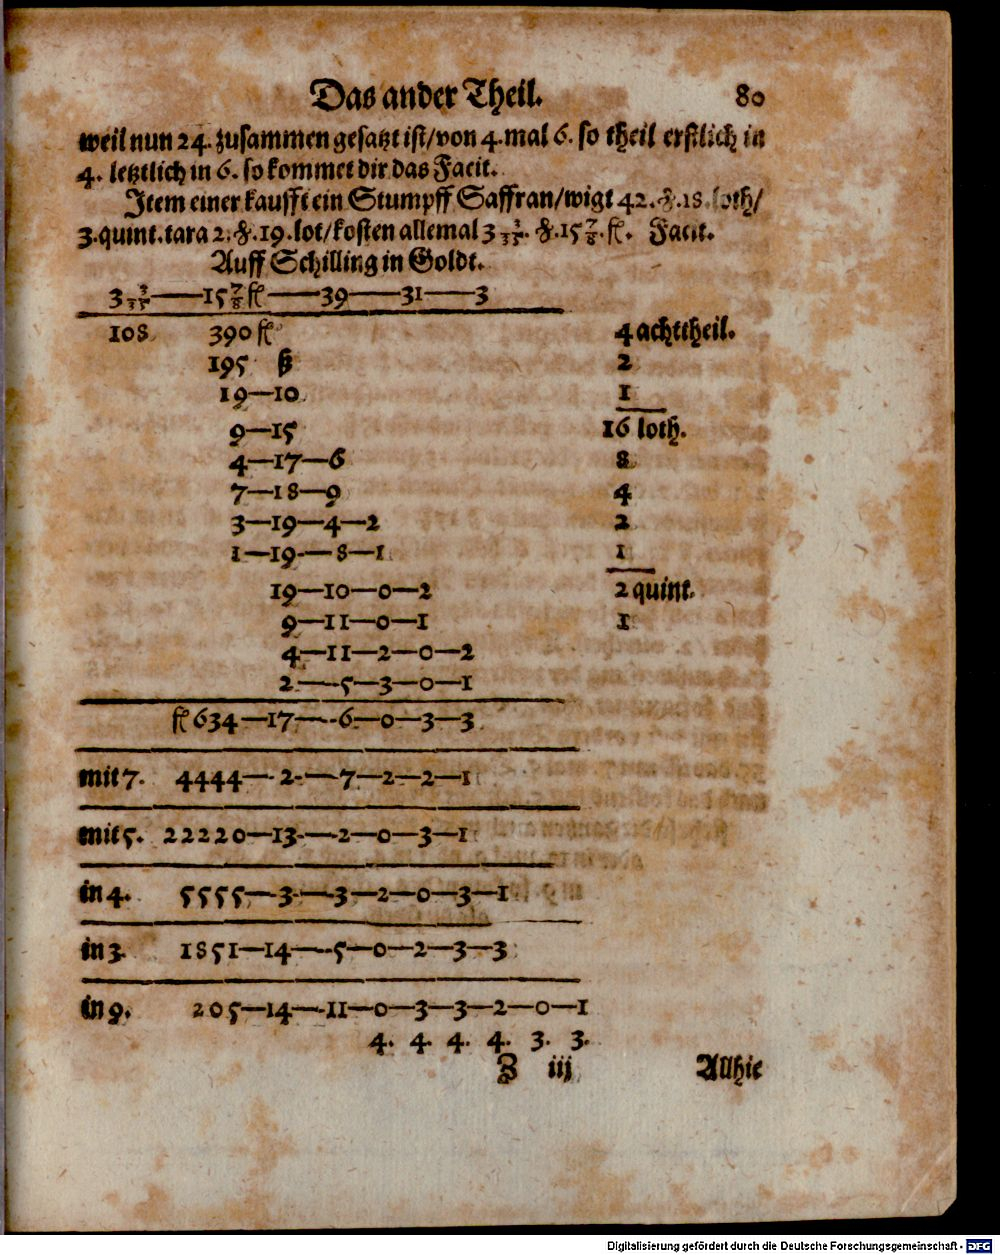 Das ander Theil. 80
weil nun 24. zusammen gesatzt ist/von 4. mal 6. so theil erstlich in
4. letztlich in 6. so kommet dir das Facit.
Item einer kaufft ein Stumpff Saffran/wigt 42. ℔. 18. loth/
3. quint. tara 2. ℔. 19. lot/kosten allemal 3 3/35. ℔. 15 7/8. fl. Facit.
Auff Schilling in Goldt.
3 3/35—15 7/8 fl—39—31—3
108 390 fl 4 achttheil.
195 ß 2
19—10 1
9—15 16 loth.
4—17—6 8
7—18—9 4
3—19—4—2 2
1—19—8—1 1
19—10—0—2 2 quint.
9—11—0—1 1
4—11—2—0—2
2—5—3—0—1
fl 634—17—6—0—3—3
mit 7. 4444—2—7—2—2—1
mit 5. 22220—13—2—0—3—1
in 4. 5555—3—3—2—0—3—1
in 3. 1851—14—5—0—2—3—3
in 9. 205—14—11—0—3—3—2—0—1
4. 4. 4. 4. 3. 3.
Z iij Allhie
Digitalisierung gefördert durch die Deutsche Forschungsgemeinschaft - DFG